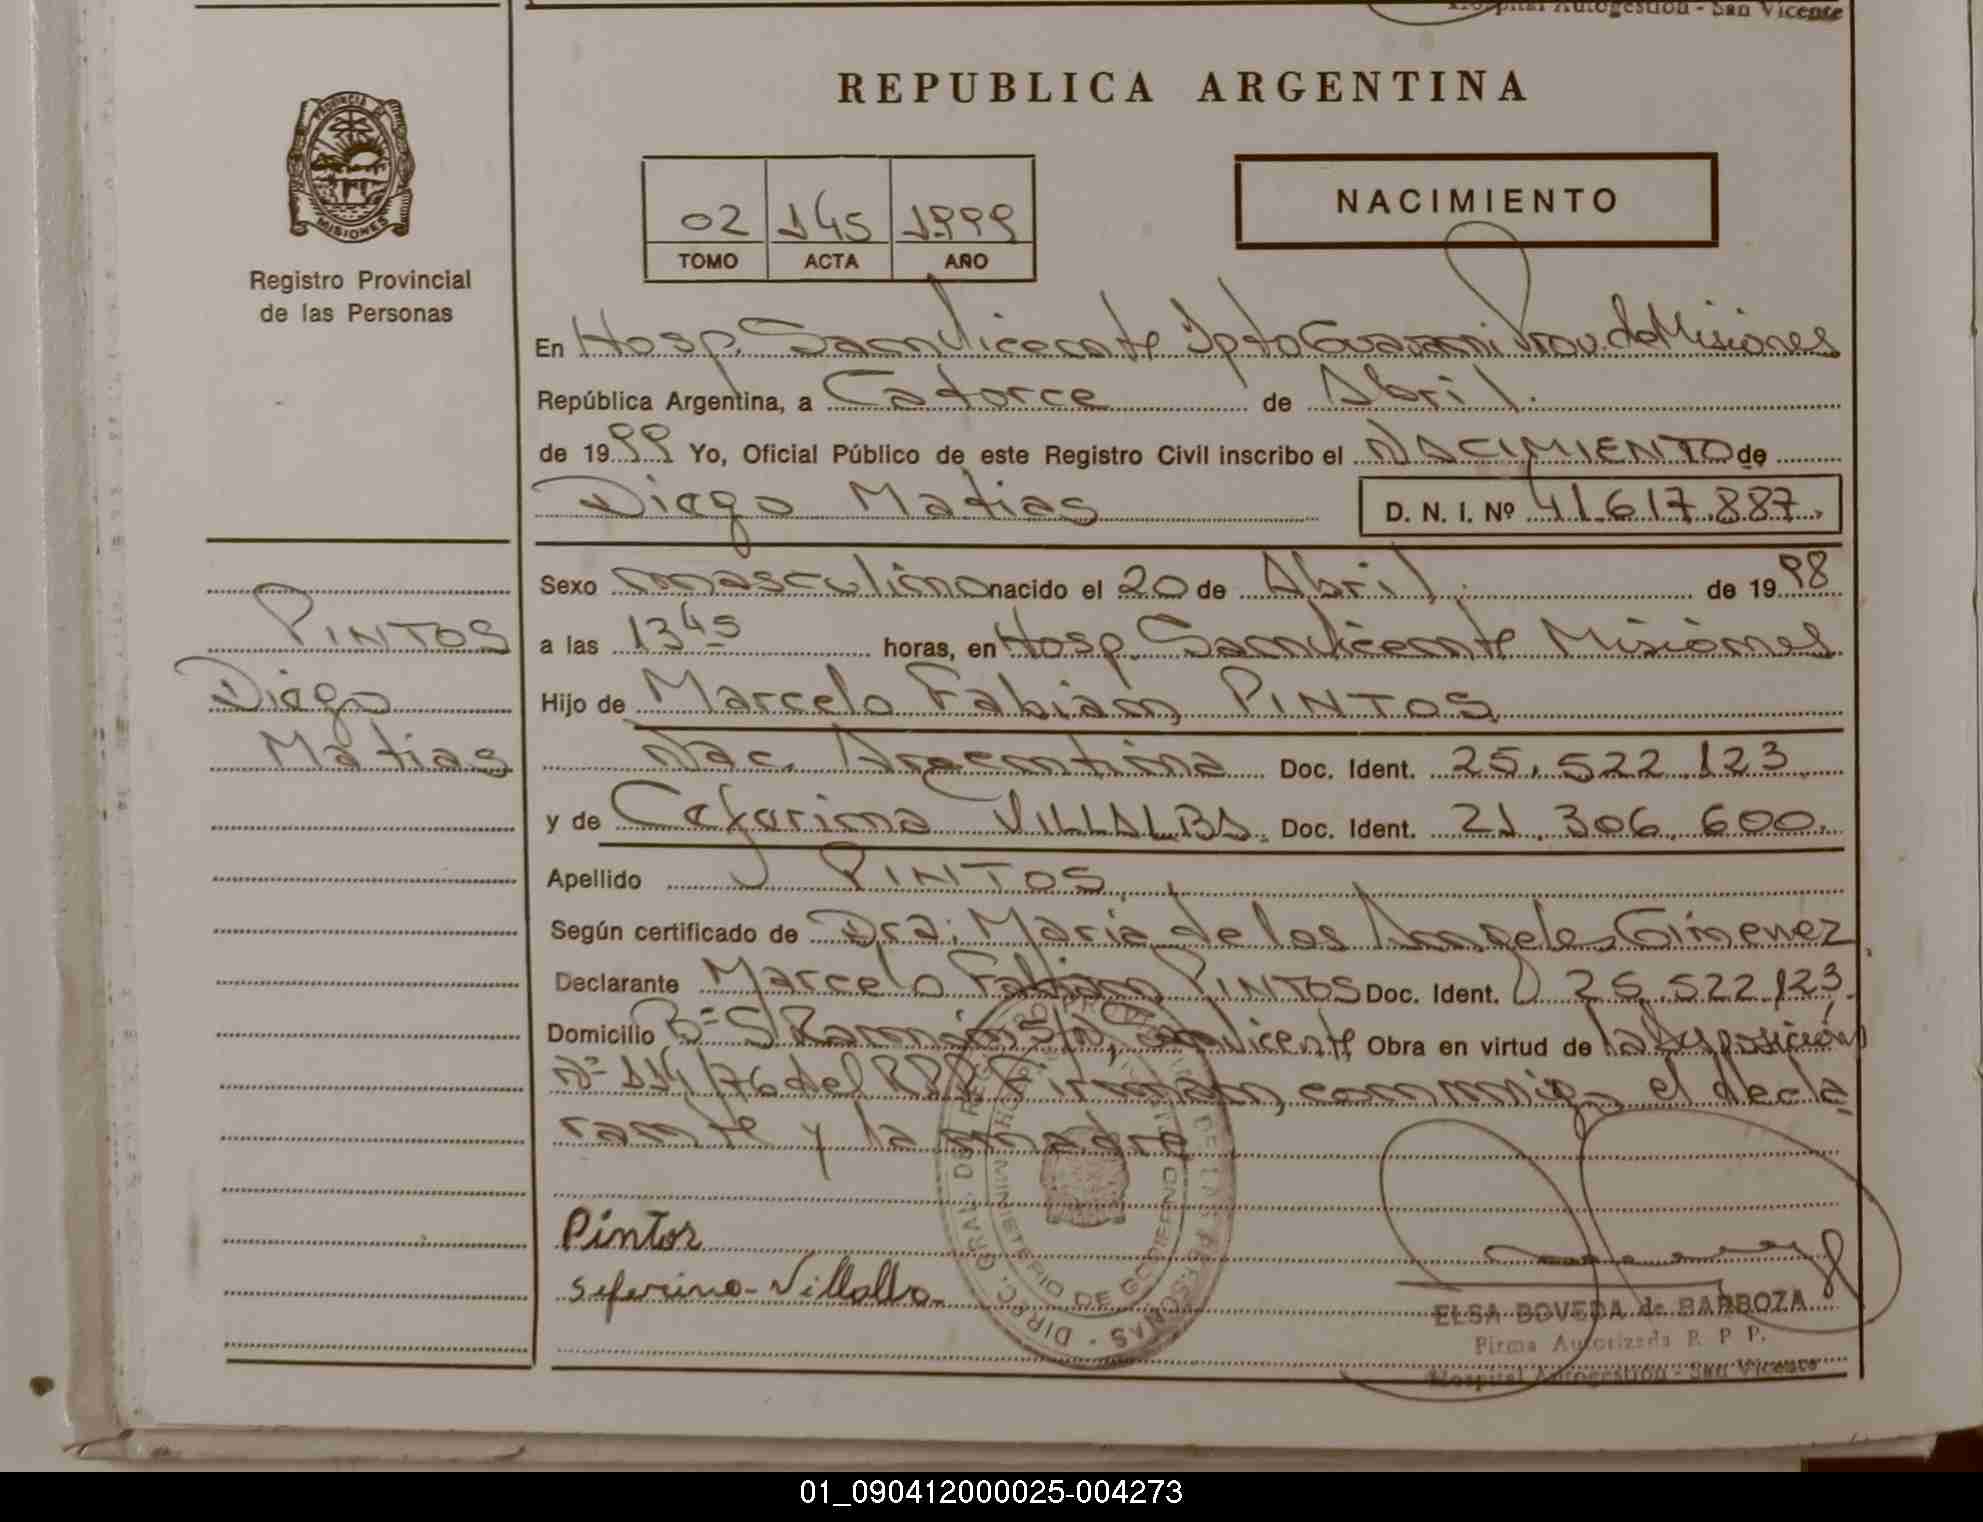 Hospital Autogestión - San Vicente
REPUBLICA ARGENTINA
PROVINCIA DE
MISIONES
Registro Provincial
de las Personas
NACIMIENTO
02 145 1999
TOMO ACTA AÑO
En Hosp. San Vicente Dpto Guarani Prov. de Misiones
República Argentina, a Catorce de Abril.
de 1999 Yo, Oficial Público de este Registro Civil inscribo el NACIMIENTO de
Diego Matias D. N. I. Nº 41.617.887.
Sexo masculino nacido el 20 de Abril. de 1998
a las 13 45 horas, en Hosp. San Vicente Misiones
PINTOS
Diego
Matias
Hijo de Marcelo Fabián PINTOS
Nac. Argentina Doc. Ident. 25.522.123
y de Ceferina VILLALBA. Doc. Ident. 21.306.600.
Apellido PINTOS
Según certificado de Dra. Maria de los Angeles Gimenez
Declarante Marcelo Fabián PINTOS Doc. Ident. 25.522.123.
Domicilio Bº S/Ramón S/N, San Vicente Obra en virtud de la disposición
Nº 114/76 del RPP. Firman conmigo el decla
rante y la madre
Pintos
Seferina - Villalba
DIREC. GRAL. DEL REG. PROVINCIAL DE LAS PERSONAS
MINISTERIO DE GOBIERNO
ELSA BOVEDA de BARBOZA
Firma Autorizada R. P. P.
Hospital Autogestión - San Vicente
01_090412000025-004273